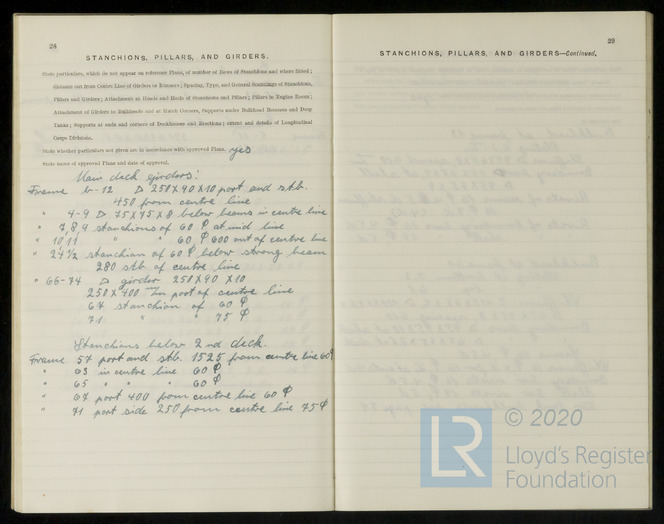 28
STANCHIONS, PILLARS, AND GIRDERS.
State particulars, which do not appear on reference Plans, of number of Rows of Stanchions and where fitted;
distance out from Centre Line of Girders or Runners; Spacing, Type, and General Scantlings of Stanchions,
Pillars and Girders; Attachments at Heads and Heels of Stanchions and Pillars; Pillars in Engine Room;
Attachment of Girders to Bulkheads and at Hatch Corners, Supports under Bulkhead Recesses and Deep
Tanks; Supports at ends and corners of Deckhouses and Erections; extent and details of Longitudinal
Cargo Divisions.
State whether particulars not given are in accordance with approved Plans. yes
State name of approved Plans and date of approval.
Main deck girders:
Frame 6-12 D 250 x 90 x 10 port and stb.
450 from centre line
" 4-9 D 75 x 75 x 8 below beams in centre line
" 7,8,9 stanchions of 60 φ at mid line
" 10,11 " " 60 φ 600 out of centre line
" 24½ stanchion of 60 φ below strong beam
280 stb of centre line
" 66-74 D girder 250 x 90 x 10
250 x 400 port of centre line
67 stanchion of 60 φ
71 " " 75 φ
Stanchions below 2nd deck.
Frame 57 port and stb. 1525 from centre line 60 φ
" 63 in centre line 60 φ
" 65 " " " 60 φ
" 67 port 400 from centre line 60 φ
" 71 port side 250 from centre line 75 φ
29
STANCHIONS, PILLARS, AND GIRDERS—Continued.
© 2020
LR
Lloyd's Register
Foundation